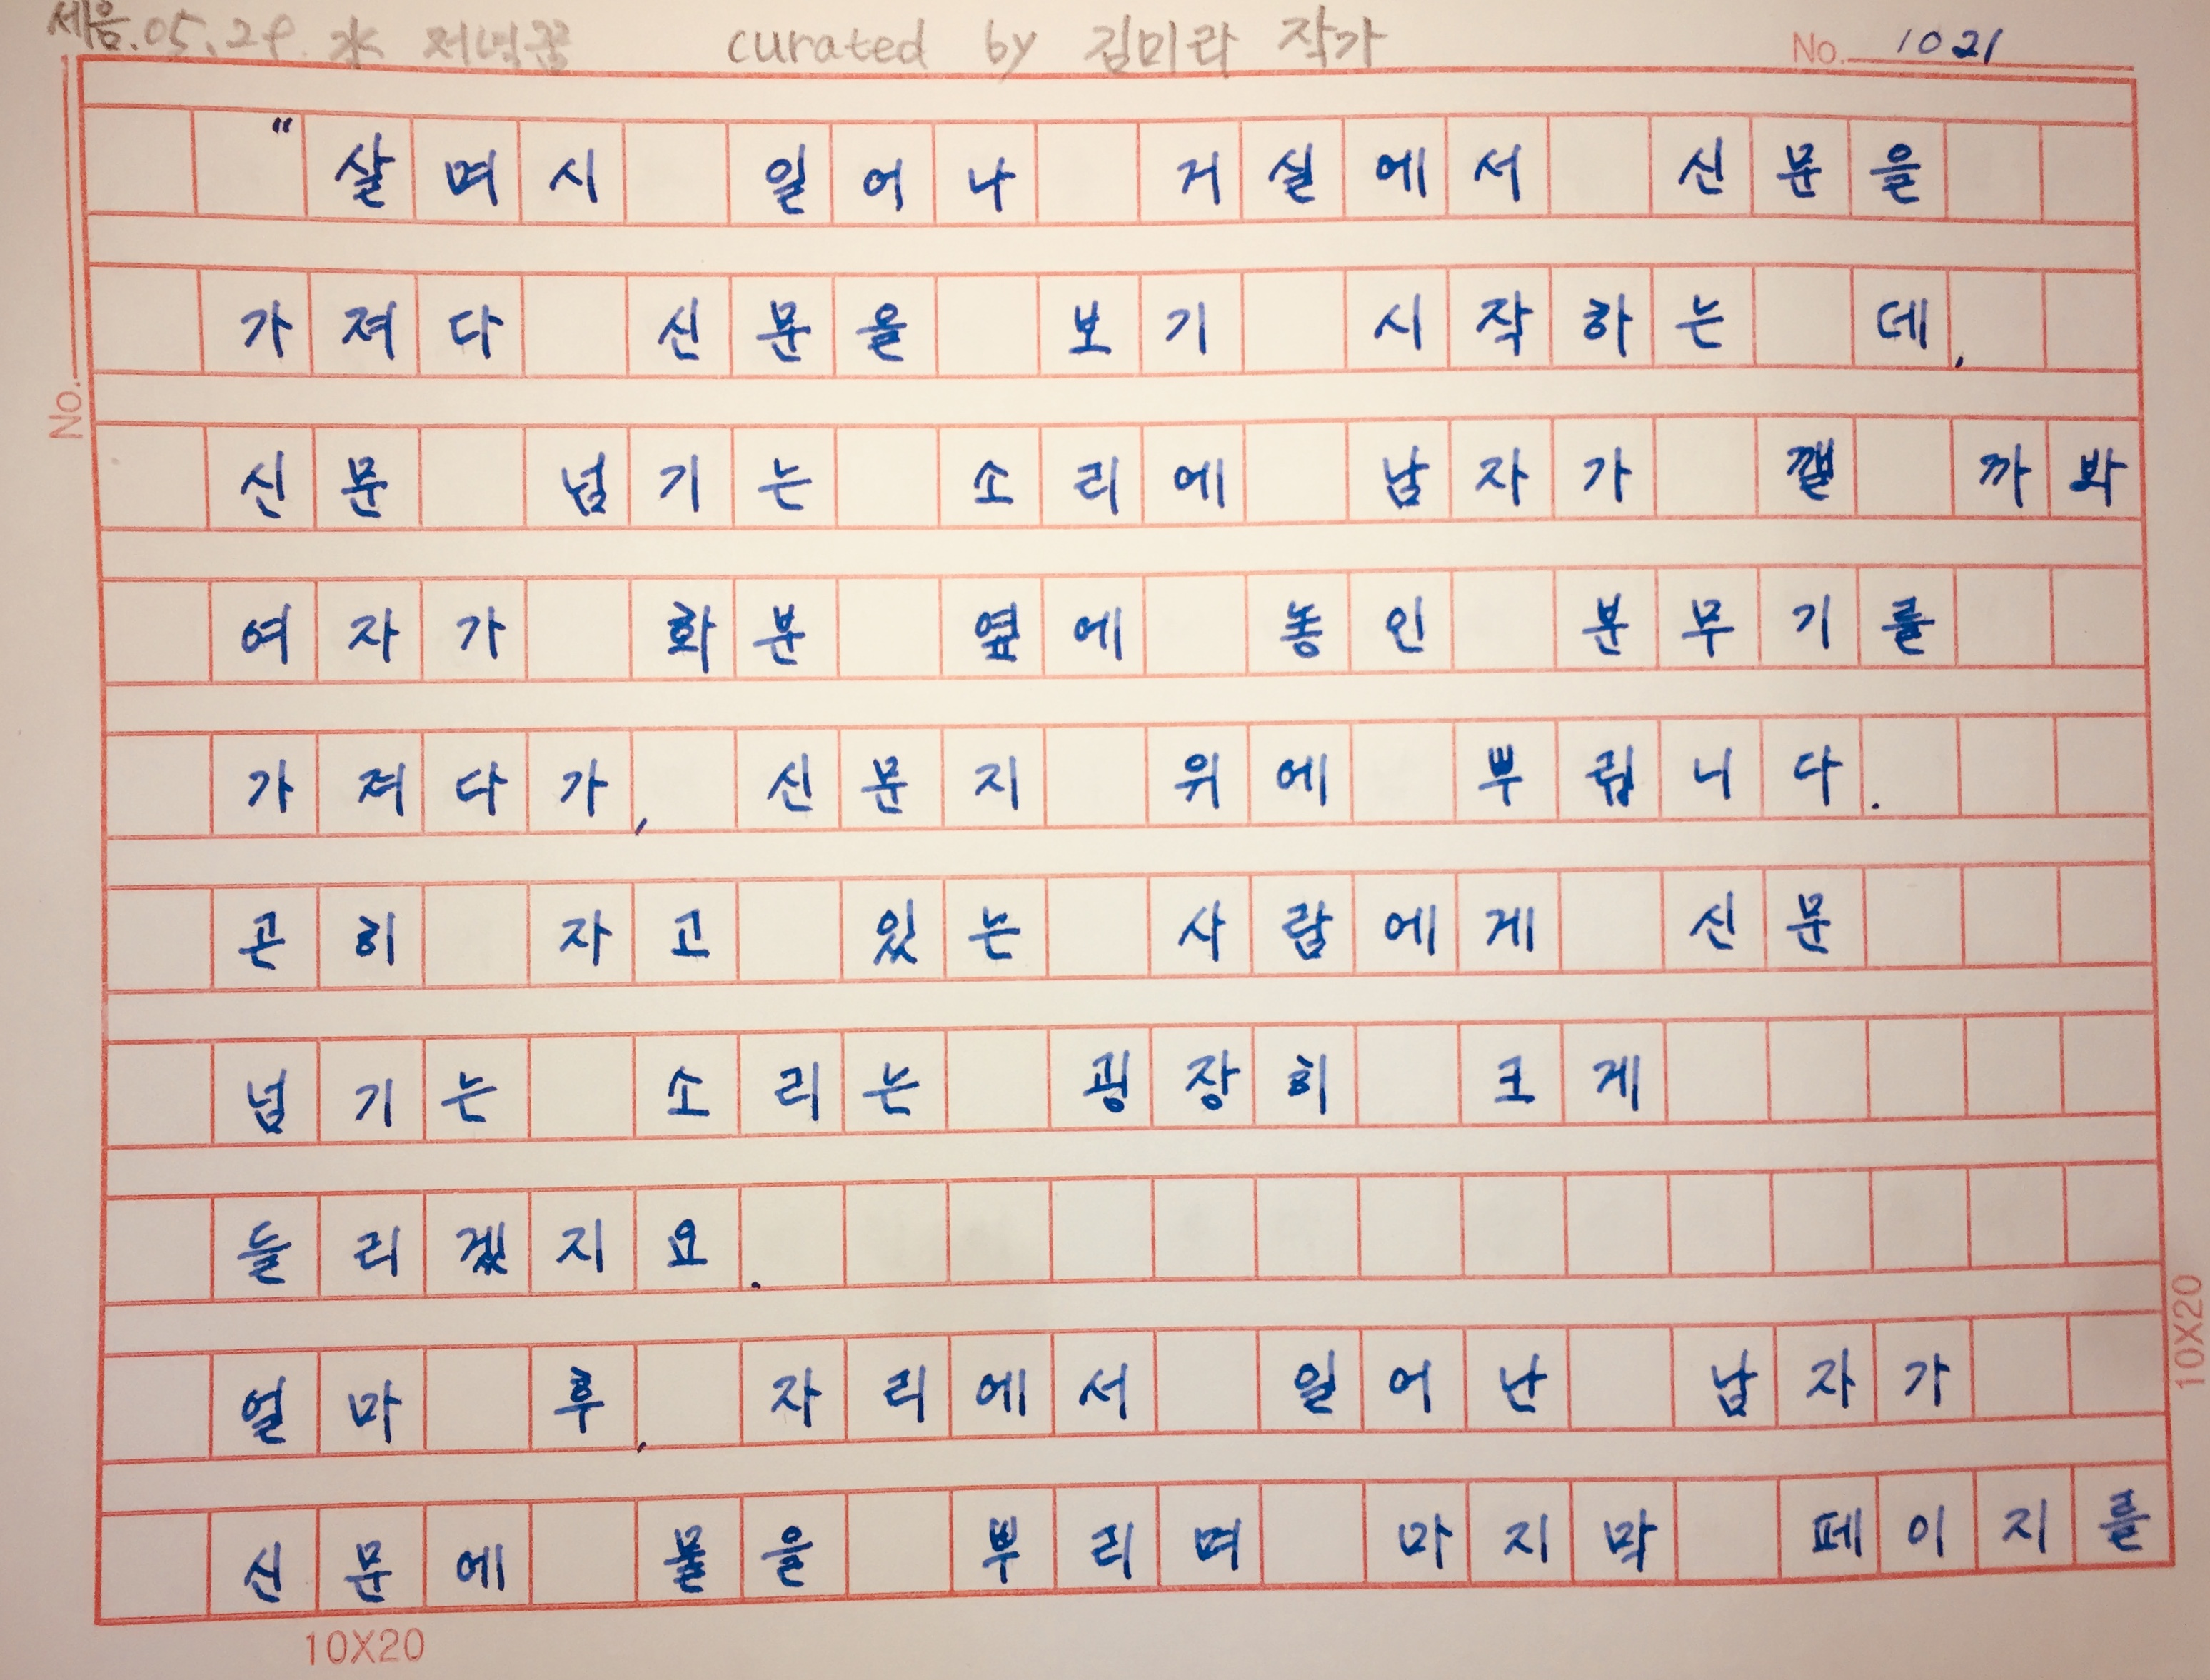 세음.05.29. 水 저녁꿈 curated by 김미라 작가 No. 1021
"살며시 일어나 거실에서 신문을
가져다 신문을 보기 시작하는 데,
신문 넘기는 소리에 남자가 깰 까봐
여자가 화분 옆에 놓인 분무기를
가져다가, 신문지 위에 뿌립니다.
곤히 자고 있는 사람에게 신문
넘기는 소리는 굉장히 크게
들리겠지요.
얼마 후, 자리에서 일어난 남자가
신문에 물을 뿌리며 마지막 페이지를
No.
10X20
10X20